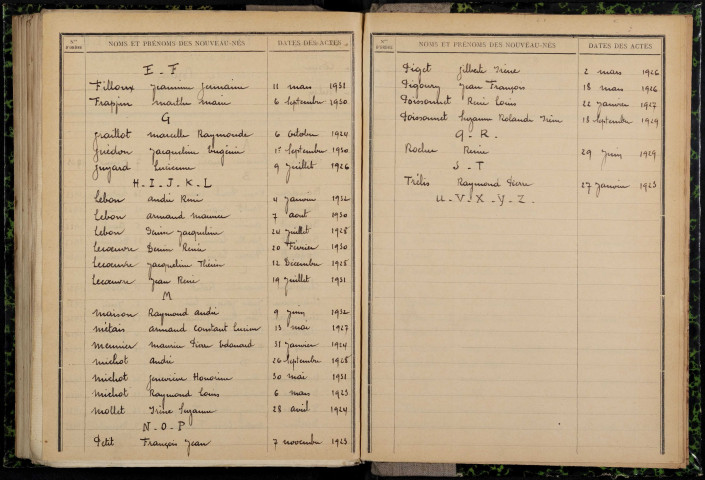 Nos D'ORDRE NOMS ET PRÉNOMS DES NOUVEAU-NÉS DATES DES ACTES
E - F
Filloux Jeannine Germaine 11 mars 1932
Frappin Marthe Marie 6 Septembre 1930
G
Graillot Marcelle Raymonde 6 Octobre 1924
Guédon Jacqueline Eugénie 1er Septembre 1930
Guyard Lucienne 9 Juillet 1926
H - I - J - K - L
Lebon André René 4 Janvier 1932
Lebon Armand Maurice 7 Août 1930
Lebon Jacqueline 24 Juillet 1928
Lecoeuvre Denise Renée 20 Février 1930
Lecoeuvre Jacqueline 12 Décembre 1928
Lecoeuvre Jean René 19 Juillet 1931
M
Maison Raymond André 9 Juin 1932
Métais Armand Constant Lucien 13 Mai 1927
Meunier Maurice Pierre Edouard 31 Janvier 1924
Michot André 26 Septembre 1928
Michot Geneviève Honorine 30 Mai 1931
Michot Raymond Louis 6 Mars 1923
Mollet Irène Suzanne 28 Avril 1924
N - O - P
Petit François Jean 7 Novembre 1923
Nos D'ORDRE NOMS ET PRÉNOMS DES NOUVEAU-NÉS DATES DES ACTES
Piget Gilberte Irène 2 Mars 1926
Pigoury Jean François 18 Mars 1926
Poissonnet René Louis 22 Janvier 1927
Poissonnet Suzanne Rolande Irène 18 Septembre 1929
Q - R -
Roche Renée 29 Juin 1929
S - T
Trélis Raymond Pierre 27 Janvier 1923
U - V - X - Y - Z -